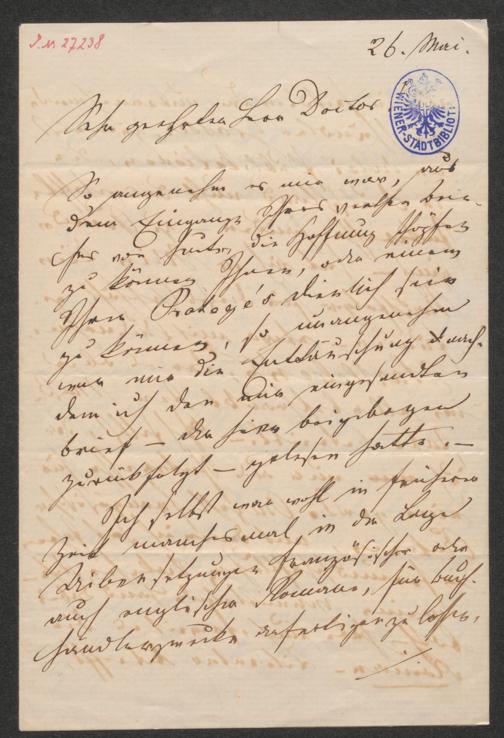 J. N 27238
26. Mai.
WIENER-STADTBIBLIOT
Sehr geehrter Herr Doctor.
So angenehm es mir war, aus
dem Eingange Ihres werthen Brie-
fes von heute, die Hoffnung schöpfen
zu können Ihnen, oder einem
Ihrer Protegé's dienlich sein
zu können, so unangenehm
war mir die Enttäuschung nach-
dem ich den mir eingesandten
Brief – der hier beigebogen
zurückfolgt – gelesen hatte. –
Ich selbst war wohl in früherer
Zeit manchesmal in der Lage
Uibersetzungen französischer oder
auch englischer Romane, für Buch-
händlerzwecke anfertigen zu lassen,